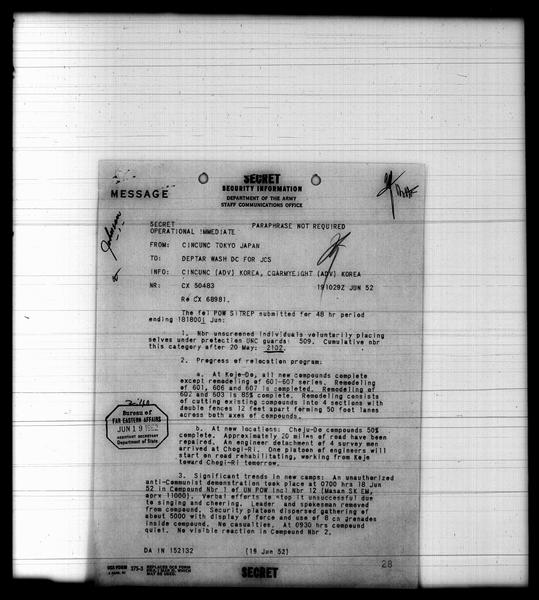 SECRET
SECURITY INFORMATION
MESSAGE
DEPARTMENT OF THE ARMY
STAFF COMMUNICATIONS OFFICE
SECRET PARAPHRASE NOT REQUIRED
OPERATIONAL IMMEDIATE
FROM: CINCUNC TOKYO JAPAN
TO: DEPTAR WASH DC FOR JCS
INFO: CINCUNC (ADV) KOREA, CGARMYEIGHT (ADV) KOREA
NR: CX 50483 191029Z JUN 52
Re CX 68981.
The fol POW SITREP submitted for 48 hr period
ending 181800I Jun:
1. Nbr unscreened individuals voluntarily placing
selves under protection UNC guards: 509. Cumulative nbr
this category after 20 May: 2102.
2. Progress of relocation program:
a. At Koje-Do, all new compounds complete
except remodeling of 601-607 series. Remodeling
of 601, 606 and 607 is completed. Remodeling of
602 and 603 is 85% complete. Remodeling consists
of cutting existing compounds into 4 sections with
double fences 12 feet apart forming 50 foot lanes
across both axes of compounds.
b. At new locations: Cheju-Do compounds 50%
complete. Approximately 20 miles of road have been
repaired. An engineer detachment of 4 survey men
arrived at Chogi-Ri. One platoon of engineers will
start on road rehabilitating, working from Koje
toward Chogi-Ri tomorrow.
Bureau of
FAR EASTERN AFFAIRS
JUN 19 1952
ASSISTANT SECRETARY
Department of State
3. Significant trends in new camps: An unauthorized
anti-Communist demonstration took place at 0700 hrs 18 Jun
52 in Compound Nbr 1 of UN POW Incl Nbr 12 (Masan SK EM,
aprx 11000). Verbal efforts to stop it unsuccessful due
to singing and cheering. Leader and spokesman removed
from compound. Security platoon dispersed gathering of
about 5000 with display of force and use of 8 cn grenades
inside compound. No casualties. At 0930 hrs compound
quiet. No visible reaction in Compound Nbr 2.
DA IN 152132 (19 Jun 52)
FORM 375-3 REPLACES OCS FORM
375-3 WHICH
MAY BE USED.
SECRET
28